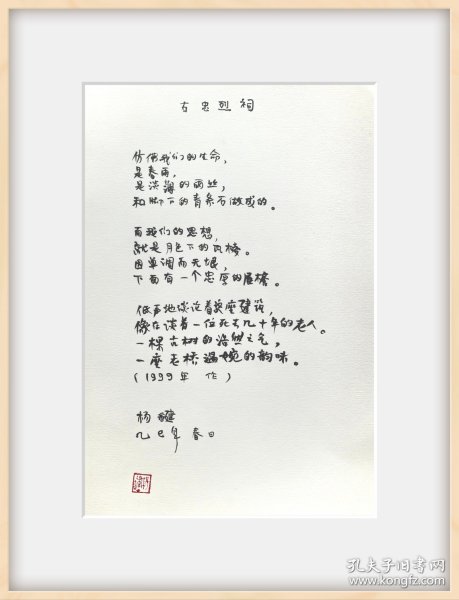 古忠烈祠
仿佛我们的生命,
是春雨,
是淡薄的雨丝,
和脚下的青条石做成的。
而我们的思想,
就是月色下的瓦楞。
因单调而无垠,
下面有一个忠厚的屋檐。
低声地谈论着这座建筑,
像在谈着一位死去几十年的老人。
一棵古树的浩然之气,
一座老桥温婉的韵味。
(1999年 作)
杨键
乙巳年 春日
孔夫子旧书网
www.kongfz.com